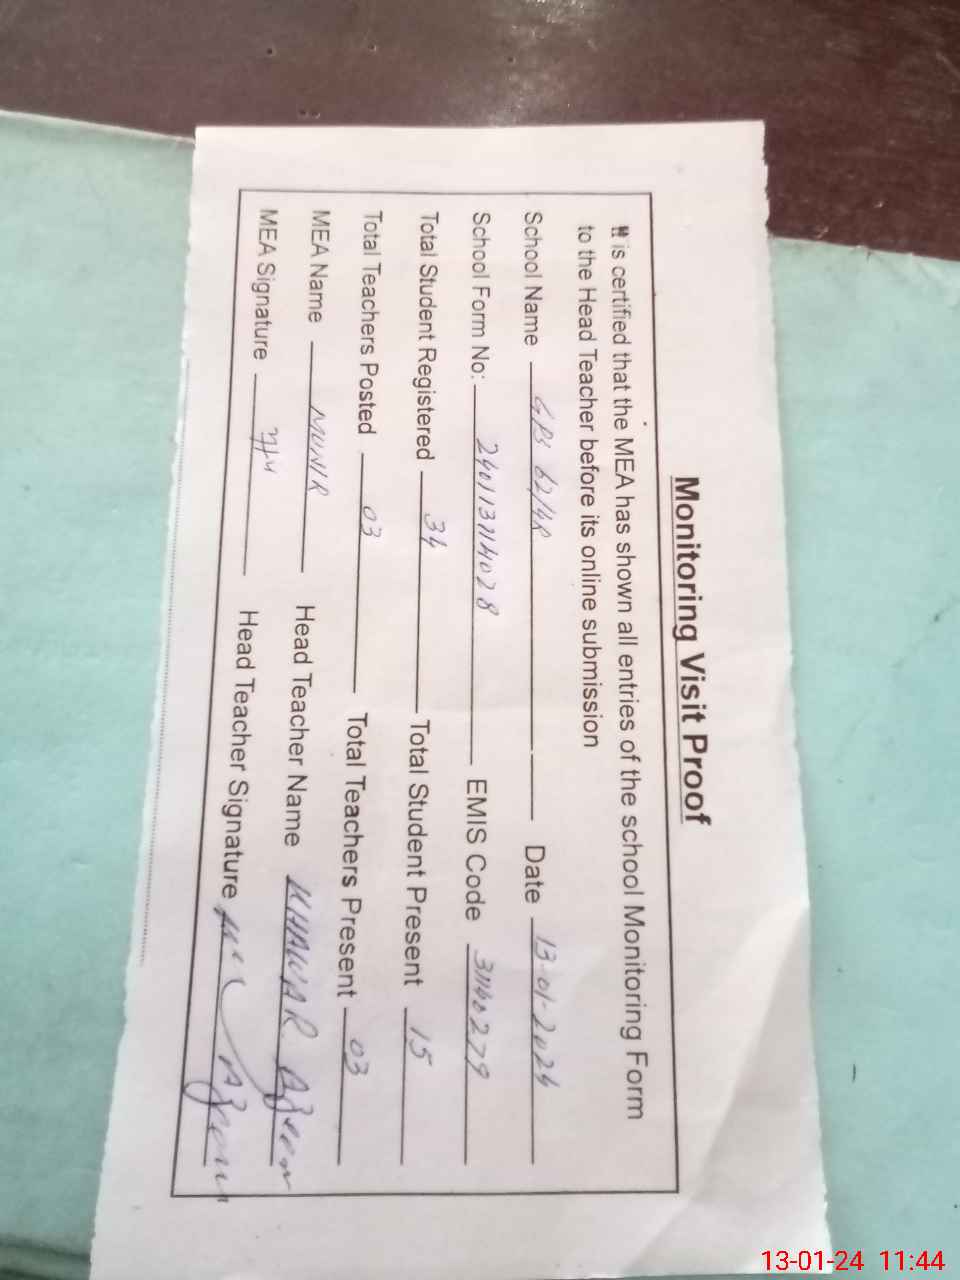 Monitoring Visit Proof
It is certified that the MEA has shown all entries of the school Monitoring Form
to the Head Teacher before its online submission
School Name GPS 62/4R Date 13-01-2024
School Form No: 240113114028 EMIS Code 31160279
Total Student Registered 34 Total Student Present 15
Total Teachers Posted 03 Total Teachers Present 03
MEA Name MUNIR Head Teacher Name KHAWAR Azeem
MEA Signature Head Teacher Signature
13-01-24 11:44